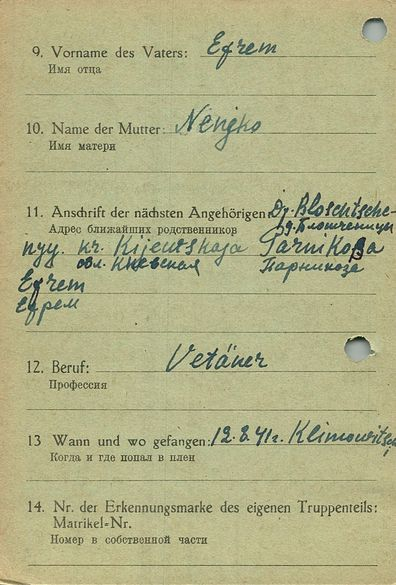 9. Vorname des Vaters: Efrem
Имя отца
10. Name der Mutter: Nenjko
Имя матери
11. Anschrift der nächsten Angehörigen: Df. Bloschtsche-
Адрес ближайших родственников
kr. Kijewskaja Parnikosa
обл. Киевская Парникоза
Efrem
Ефрем
12. Beruf: Vetäner
Профессия
13 Wann und wo gefangen: 12.8.41г. Klimowitsch
Когда и где попал в плен
14. Nr. der Erkennungsmarke des eigenen Truppenteils:
Matrikel-Nr.
Номер в собственной части